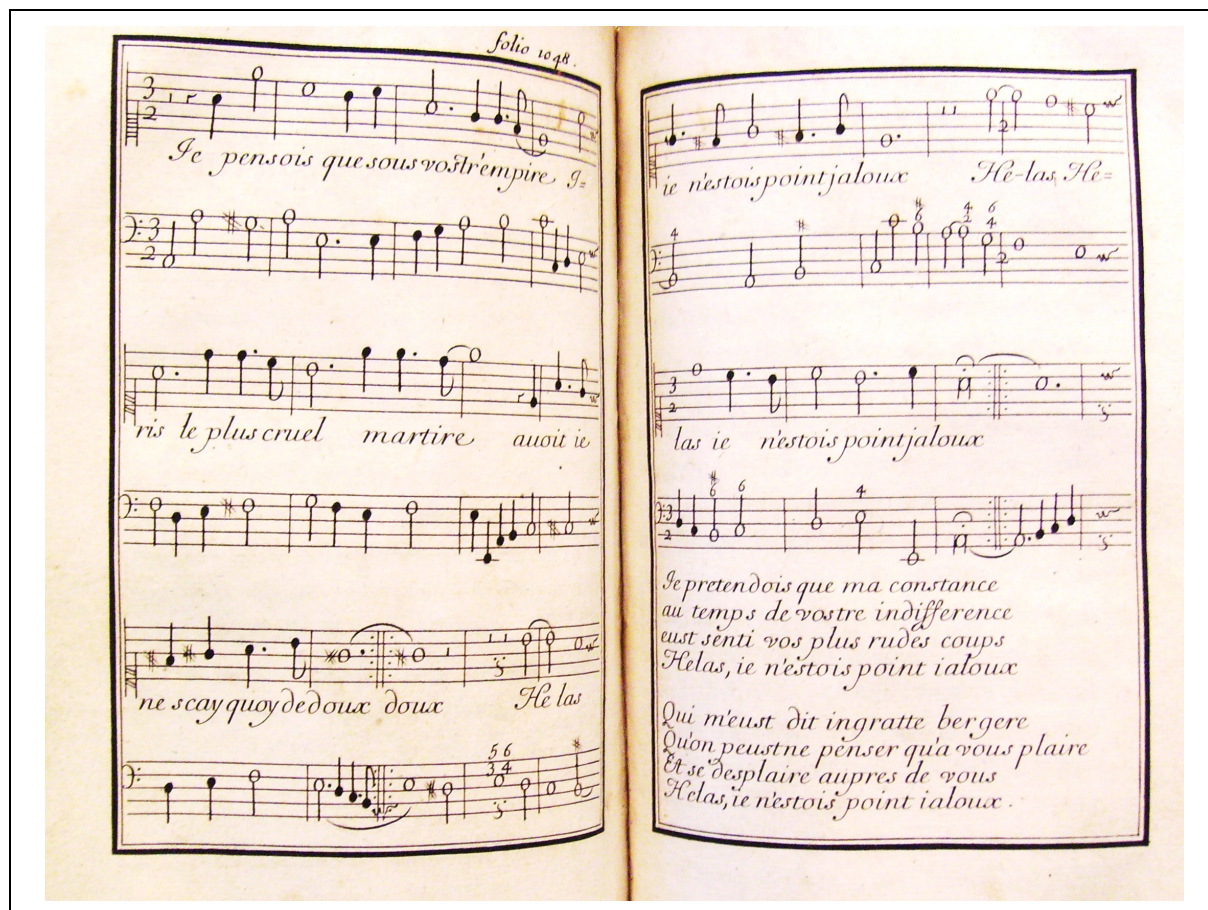 folio 1048.
Je pensois que sous vostr'empire I=
ris le plus cruel martire auoit ie
ne scay quoy de doux doux He las
5 6
3 4
ie n'estois point jaloux He-las, He=
4 6 4 2 6 4
las ie n'estois point jaloux
6 6 4
Je pretendois que ma constance
au temps de vostre indifference
eust senti vos plus rudes coups
Helas, ie n'estois point ialoux
Qui m'eust dit ingratte bergere
Qu'on peust ne penser qu'a vous plaire
Et se desplaire aupres de vous
Helas, ie n'estois point ialoux.